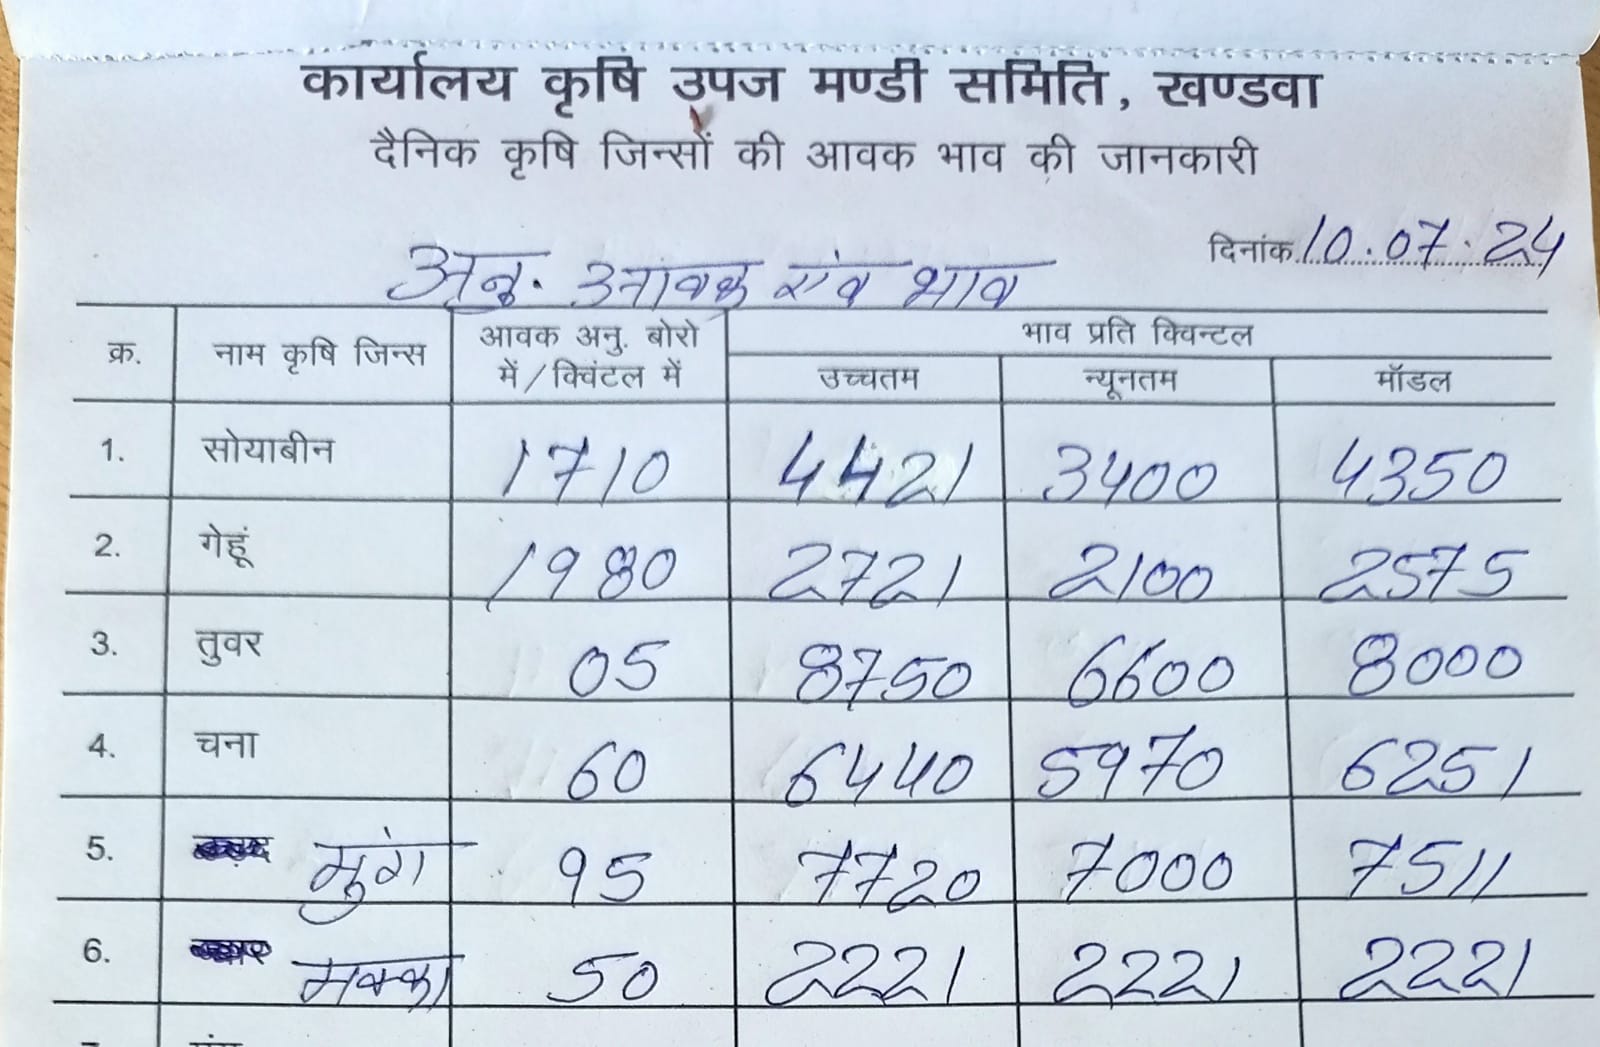 कार्यालय कृषि उपज मण्डी समिति, खण्डवा
दैनिक कृषि जिन्सों की आवक भाव की जानकारी
दिनांक 10.07.24
अनु. आवक एंव भाव
क्र. नाम कृषि जिन्स आवक अनु. बोरो में/क्विंटल में भाव प्रति क्विन्टल
उच्चतम न्यूनतम मॉडल
1. सोयाबीन 1710 4421 3400 4350
2. गेहूं 1980 2721 2100 2575
3. तुवर 05 8750 6600 8000
4. चना 60 6440 5970 6251
5. मुंग 95 7720 7000 7511
6. मक्का 50 2221 2221 2221